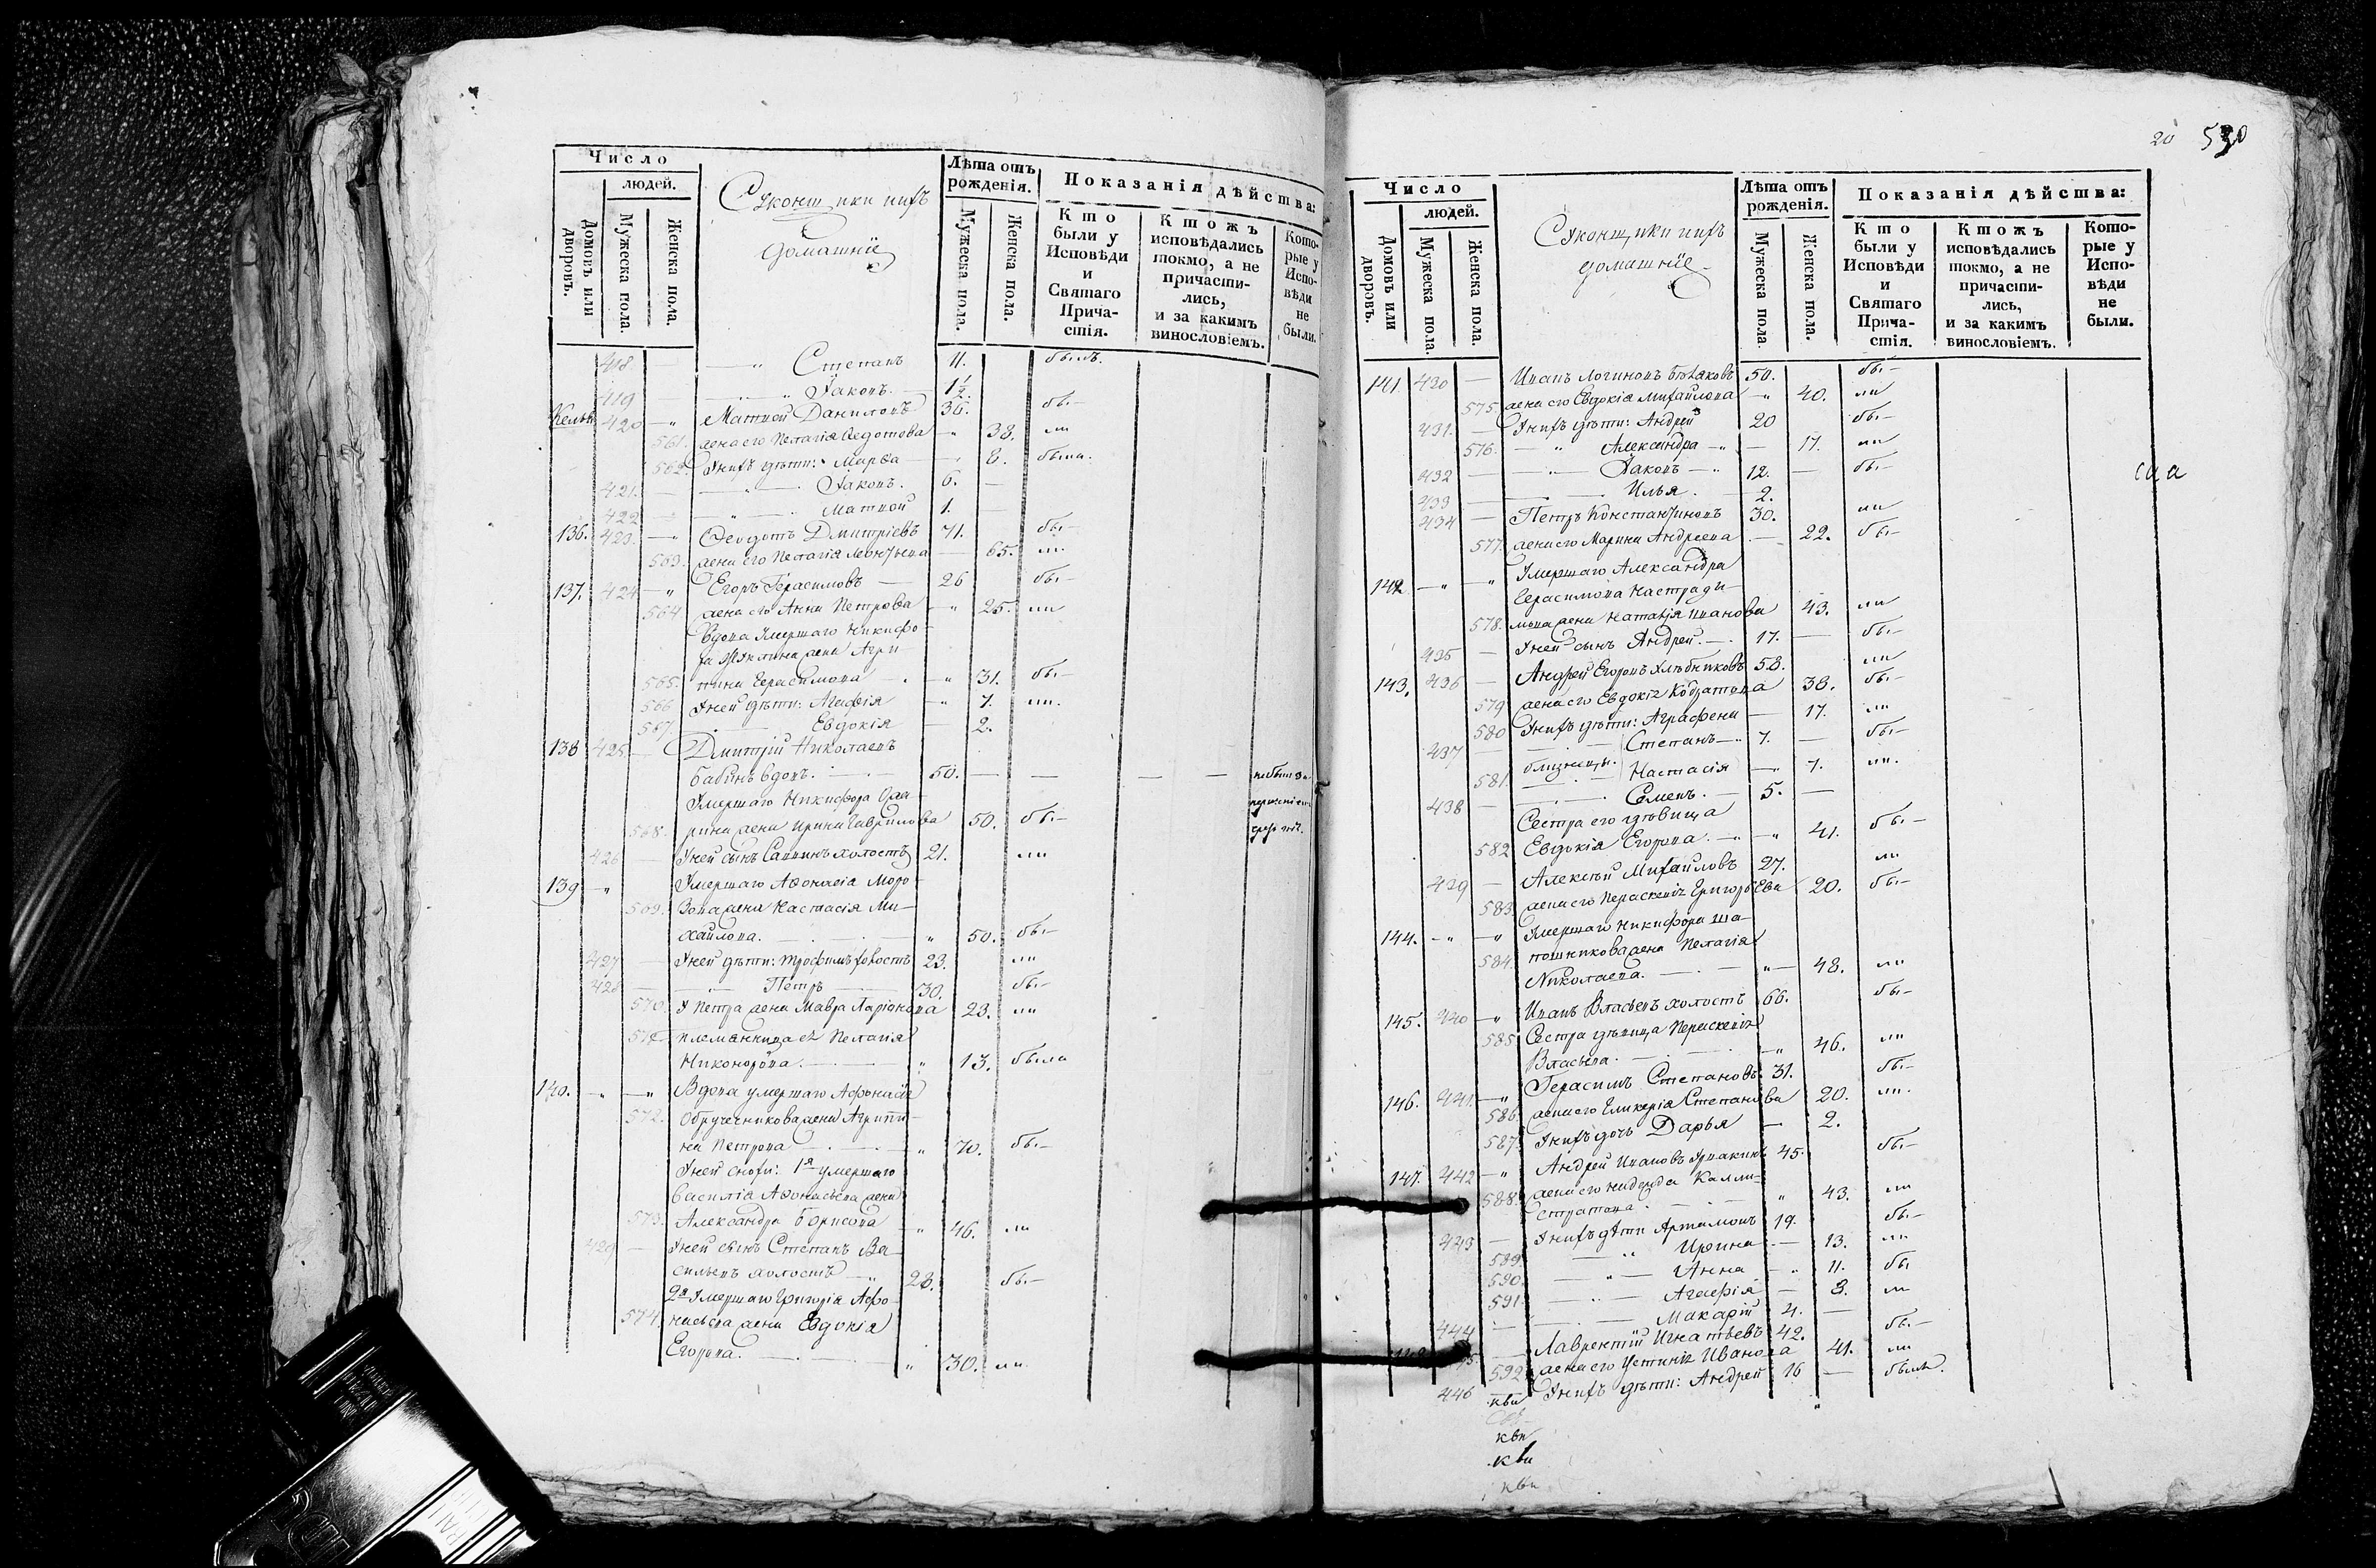 Число
людей.
Домовъ или дворовъ.
Мужеска пола.
Женска пола.
Суконщики ихъ
домашнїе
Лѣта отъ
рожденія.
Мужеска пола.
Женска пола.
Показанія дѣйства:
Кто были у Исповѣди и Святаго Прича-стія.
Ктожъ исповѣдались токмо, а не причасти-лись, и за какимъ винословіемъ.
Кото-рые у Испо-вѣди не были.
418. — Степанъ 11. былъ.
419 Іаковъ. 1½.
420 Матвей Даниловъ 36. бы—
561. жена его Пелагія Ѳедотова 38. ли
562. У нихъ дѣти: Марѳа 8. была.
421. Іаковъ. 6. —
422 Матвей 1.
136. 423. Ѳеодотъ Дмитріевъ 71. бы—
563. жена его Пелагія Леонтьева 65. ли
137. 424 Егоръ Герасимовъ 26 бы—
564 жена его Анна Петрова 25. ли
Вдова умершаго Никифо-
жена Агри-
565. пина Герасимова 31. бы—
566 У ней дѣти: Агафія 7. ли.
567. Евдокія 2.
138 425 Дмитрій Николаевъ
Бабинъ вдовъ. 50. — — — —
Умершаго Никифора
568. жена Ирина Гаврилова 50. бы—
426 У ней сынъ холостъ 21. ли
139 Умершаго Аѳонасія Моро-
569. зова жена Настасія Ми-
хайлова. 50. бы—
427 У ней дѣти: Трофимъ холостъ 23. ли
428 Петръ 30. бы—
570. У Петра жена Мавра Ларіонова 23. ли
571 племянница ихъ Пелагія
Никонорова. 13. была
140. Вдова умершаго Афонасія
572. Обручникова жена Агрипи-
на Петрова 70. бы—
У ней снохи: 1я умершаго
Василія Аѳонасьева жена
573. Александра Борисова 46. ли
429 У ней сынъ Степанъ Ва-
сильевъ холостъ 23. бы—
2я Умершаго Григорія Афо-
574. насьева жена Евдокія
Егорова. 30. ли
20 530
Число
людей.
Домовъ или дворовъ.
Мужеска пола.
Женска пола.
Суконщики ихъ
домашнїе
Лѣта отъ
рожденія.
Мужеска пола.
Женска пола.
Показанія дѣйства:
Кто были у Исповѣди и Святаго Прича-стія.
Ктожъ исповѣдались токмо, а не причасти-лись, и за какимъ винословіемъ.
Кото-рые у Испо-вѣди не были.
141 430 — Иванъ Логиновъ 50. бы—
575. жена его Евдокія Михайлова 40. ли
431. — У нихъ дѣти: Андрей 20 бы—
576. Александра 17. ли
432 Іаковъ 12. — бы—
433 Илья. 2.
434 — Петръ Константиновъ 30. ли
577. жена его Марина Андреева 22. бы—
142 Умершаго Александра
Герасимова
578. жена Наталія Иванова 43. ли
435 — У ней сынъ Андрей. 17. — бы—
143. 436 — Андрей Егоровъ Хлѣбниковъ 58. ли
579 жена его Евдокія Кодратова 38. бы—
580 У нихъ дѣти: Аграфена — 17. ли
437 Степанъ 7. — бы—
близнецы.
581. Настасія 7. ли.
438 — Семенъ. 5. —
Сестра его дѣвица
582 Евдокія Егорова. 41. бы—
439 — Алексѣй Михайловъ 27. ли
583 жена его Параскевія Григорьева 20. бы—
144. Умершаго Никифора Ша-
584. пошникова жена Пелагія
Николаева. 48. ли
145. 440 Иванъ Власьевъ холостъ 66. бы—
585 Сестра дѣвица Параскевія
Власьева. 46. ли
146. 441 Герасимъ Степановъ 31. бы—
586. жена его Гликерія Степанова 20. ли.
587. У нихъ дочь Дарья — 2.
147. 442 Андрей Ивановъ 45. бы—
588. жена его Надежда Калли-
стратова. 43. ли
443 — У нихъ дѣти Артамонъ 19. бы—
589 Ирина — 13. ли
590. Анна 11. бы
591 Агафія — 8. ли
444 — Макарій 4. —
— Лаврентій Игнатьевъ 42. бы—
592 жена его Устинія Иванова 41. ли
446 У нихъ дѣти: Андрей 16 — былъ.